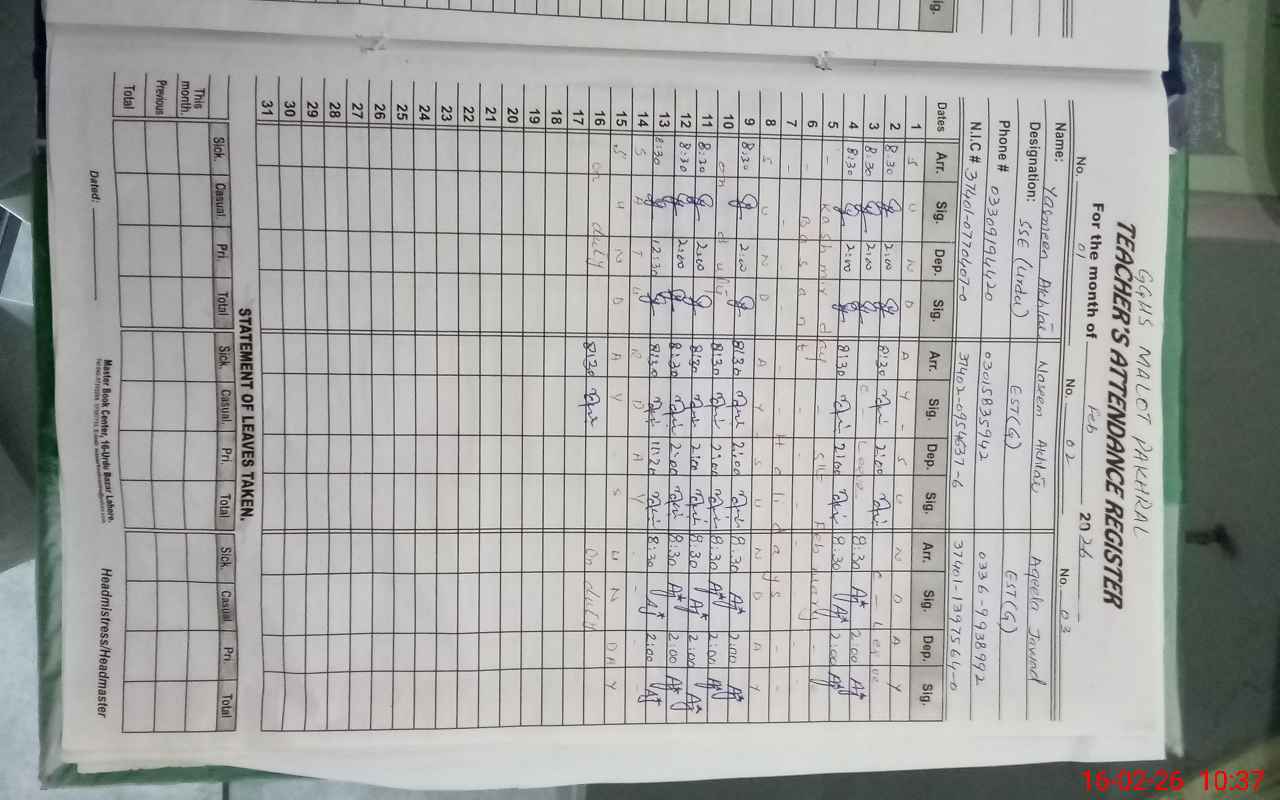 GGHS MALOT PAKHRAL
TEACHER'S ATTENDANCE REGISTER
For the month of Feb 2026
No. 01 No. 02 No. 03
Name: Yasmeen Akhtar Naseem Akhtar Aqeela Jawad
Designation: SSE (Urdu) EST(G) EST(G)
Phone # 03309194420 03015835942 0336-9938992
N.I.C # 37401-0770407-0 37402-0954637-6 37401-1397564-0
Dates Arr. Sig. Dep. Sig. Arr. Sig. Dep. Sig. Arr. Sig. Dep. Sig.
1 S U N D A Y - S U N D A Y
2 8:30 2:00 8:30 2:00 C - Leave
3 8:30 2:00 C - Leave
4 8:30 2:00 8:30 2:00 8:30 2:00
5 - Kashmir day - 5th February -
6 - Basant -
7 - - - Holidays - -
8 S U N D A Y - S U N D A Y
9 8:30 2:00 8:30 2:00 8:30 2:00
10 on duty 8:30 2:00 8:30 2:00
11 8:30 2:00 8:30 2:00 8:30 2:00
12 8:30 2:00 8:30 2:00 8:30 2:00
13 8:30 12:30 8:30 11:20 8:30 2:00
14 S A T U R D A Y
15 S U N D A Y S U N D A Y
16 on duty 8:30 on duty
17
18
19
20
21
22
23
24
25
26
27
28
29
30
31
STATEMENT OF LEAVES TAKEN.
Sick. Casual. Pri. Total Sick. Casual. Pri. Total Sick Casual Pri Total
This month.
Previous
Total
Dated:
Master Book Center, 16-Urdu Bazar Lahore.
Headmistress/Headmaster
sig.
16-02-26 10:37